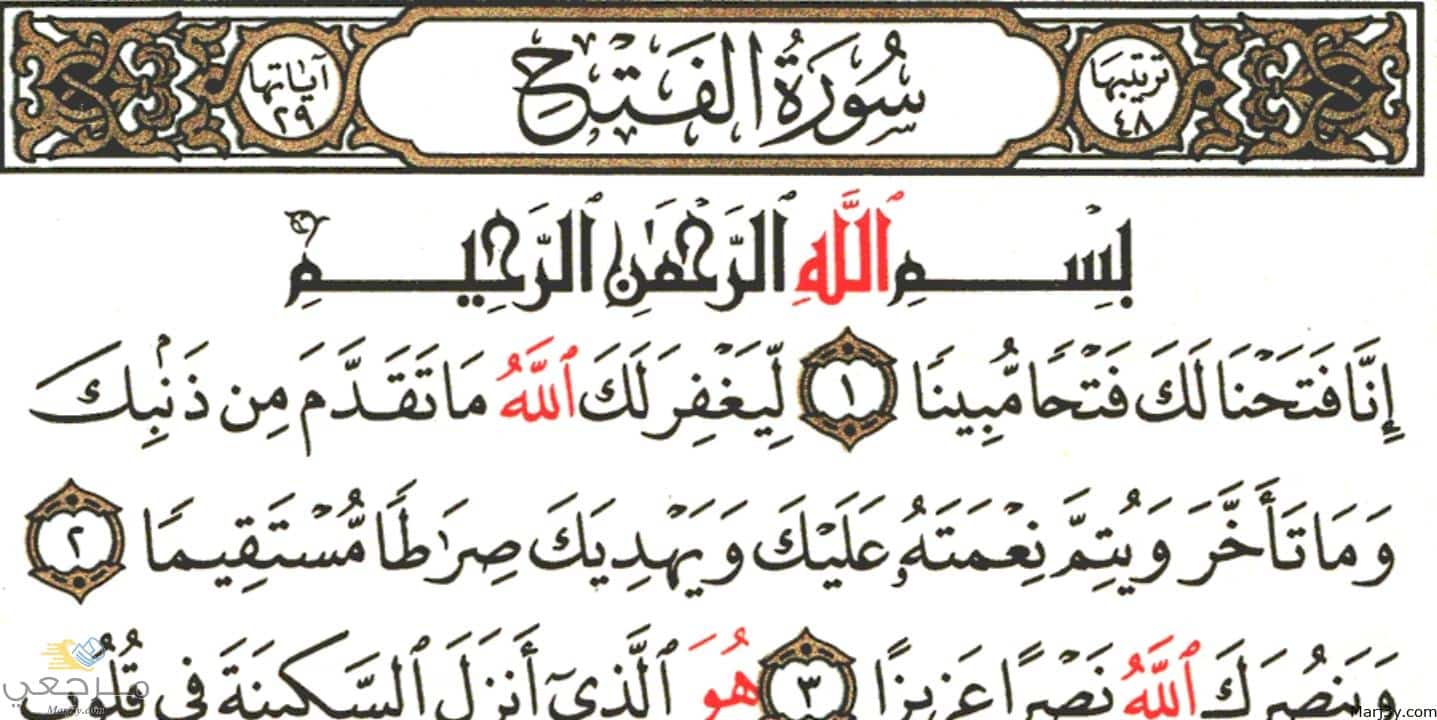 ترتيبها ٤٨
سُورَةُ الفَتْحِ
آياتها ٢٩
بِسْمِ ٱللَّهِ ٱلرَّحْمَٰنِ ٱلرَّحِيمِ
إِنَّا فَتَحْنَا لَكَ فَتْحًا مُّبِينًا ١ لِّيَغْفِرَ لَكَ ٱللَّهُ مَا تَقَدَّمَ مِن ذَنۢبِكَ
وَمَا تَأَخَّرَ وَيُتِمَّ نِعْمَتَهُۥ عَلَيْكَ وَيَهْدِيَكَ صِرَٰطًا مُّسْتَقِيمًا ٢
وَيَنصُرَكَ ٱللَّهُ نَصْرًا عَزِيزًا ٣ هُوَ ٱلَّذِىٓ أَنزَلَ ٱلسَّكِينَةَ فِى قُلُوبِ
مرجعي
Marj3y.com
Marj3y.com